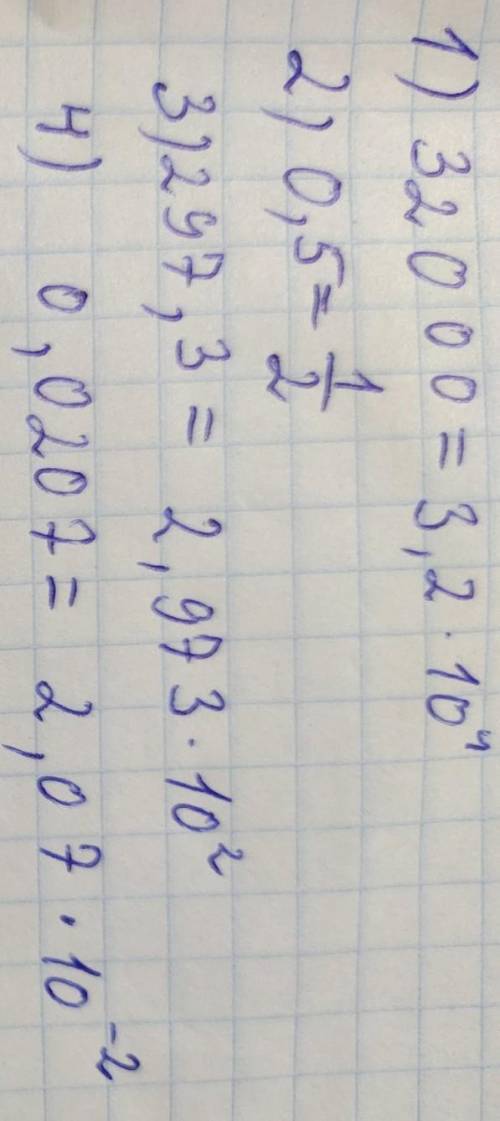 1) 32000 = 3,2 · 10⁴
2) 0,5 = 1/2
3) 297,3 = 2,973 · 10²
4) 0,0207 = 2,07 · 10⁻²